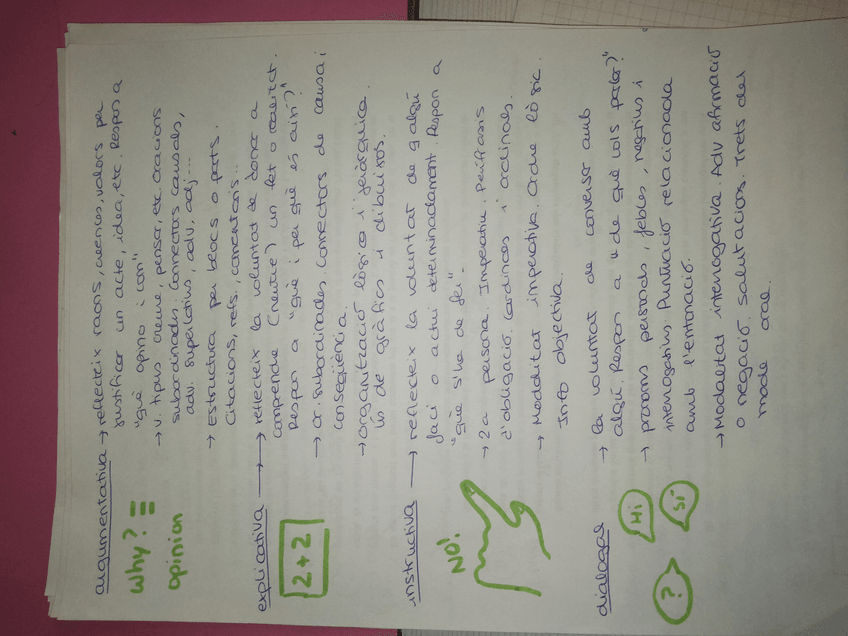 argumentativa → reflecteix raons, creences, valors per
justificar un acte, idea, etc. Respon a
"què opino i com"
why? =
opinion
→ v. tipus creure, pensar, etc. oracions
subordinades. Connectors causals,
adv. superlatius, adv, adj...
→ Estructura per blocs o parts.
Citacions, refs, comentaris...
explicativa → reflecteix la voluntat de donar a
comprendre (neutre) un fet o realitat.
Respon a "què i per què és així?"
2+2
→ Or. subordinades. Connectors de causa i
conseqüència.
→ organització lògica i jeràrquica.
ús de gràfics i dibuixos.
instructiva → reflecteix la voluntat de q algú
faci o actuï determinadament. Respon a
"què s'ha de fer".
NO!
→ 2a persona. Imperatiu. Perífrasis
d'obligació. Cardinals i ordinals.
→ Modalitat imperativa. Ordre lògic.
Info objectiva.
dialogat → la voluntat de conversar amb
algú. Respon a "de què vols parlar?"
?
Hi
Sí
→ pronoms personals, febles, negatius i
interrogatius. Puntuació relacionada
amb l'entonació.
→ Modalitat interrogativa. Adv afirmació
o negació. Salutacions. Trets del
mode oral.